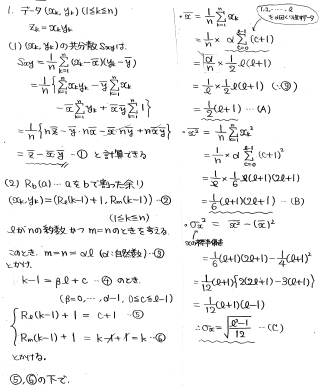 1. データ(xk, yk) (1≤k≤n)
zk = xkyk
(1) (xk, yk)の共分散Sxyは、
Sxy = 1/n Σ[k=1→n] (xk-x̄)(yk-ȳ)
= 1/n { Σ[k=1→n] xkyk - ȳ Σ[k=1→n] xk
- x̄ Σ[k=1→n] yk + x̄ȳ Σ[k=1→n] 1 }
= 1/n { n z̄ - ȳ·n x̄ - x̄·n ȳ + n x̄ȳ }
= z̄ - x̄ȳ …① と計算できる
(2) Rb(a) … aをbで割った余り
(xk, yk) = (Rℓ(k-1)+1, Rm(k-1)) …②
(1≤k≤n)
ℓがnの約数かつm=nのときを考える.
このとき, m=n=αℓ (α:自然数) …③
とかけ、
k-1 = βℓ+c …④ のとき,
(β=0,…,α-1, 0≤c≤ℓ-1)
Rℓ(k-1)+1 = c+1 …⑤
Rm(k-1)+1 = k-1+1 = k …⑥
とかける。
⑤,⑥の下で、
・x̄ = 1/n Σ[k=1→n] xk
1,2,…,ℓ
= 1/n × α Σ[c=0→ℓ-1] (c+1)
= α/n × 1/2 ℓ(ℓ+1) (∵③)
= 1/ℓ × 1/2 ℓ(ℓ+1)
= 1/2 (ℓ+1) …(A)
・x̄² = 1/n Σ[k=1→n] xk²
= 1/n × α Σ[c=0→ℓ-1] (c+1)²
= 1/ℓ × 1/6 ℓ(ℓ+1)(2ℓ+1)
= 1/6 (ℓ+1)(2ℓ+1) …(B)
・σx² = x̄² - (x̄)²
xの標準偏差
= 1/6 (ℓ+1)(2ℓ+1) - 1/4 (ℓ+1)²
= 1/12 (ℓ+1) {2(2ℓ+1) - 3(ℓ+1)}
= 1/12 (ℓ+1)(ℓ-1)
∴ σx = √(ℓ²-1 / 12) …(C)